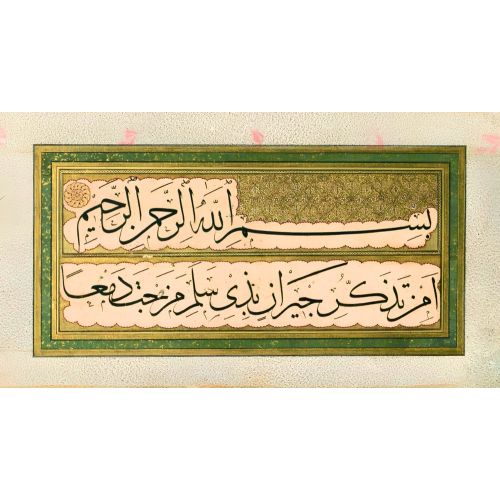 بسم الله الرحمن الرحيم
امن تذكر جيران بذى سلم مزجت دمعا